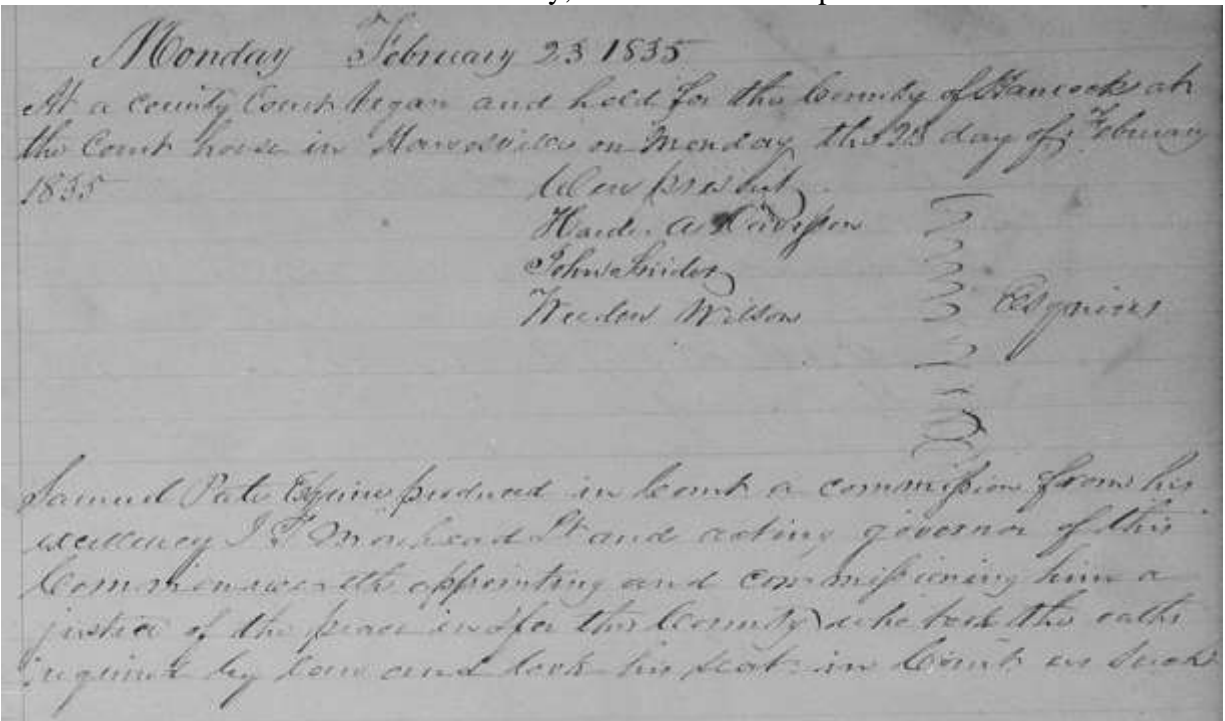 Monday February 23 1835
At a County Court began and held for the County of Hancock at
the Court house in Hawesville on Monday the 23 day of February
1835
Were present
Harden A Davison
John Snider
Weedon Wilson
Esquires
Samuel Pate Esquire produced in Court a commission from his
excellency J T Morehead Lt and acting governor of this
Commonwealth appointing and commissioning him a
justice of the peace in & for this County who took the oaths
required by law and took his seat in Court as such